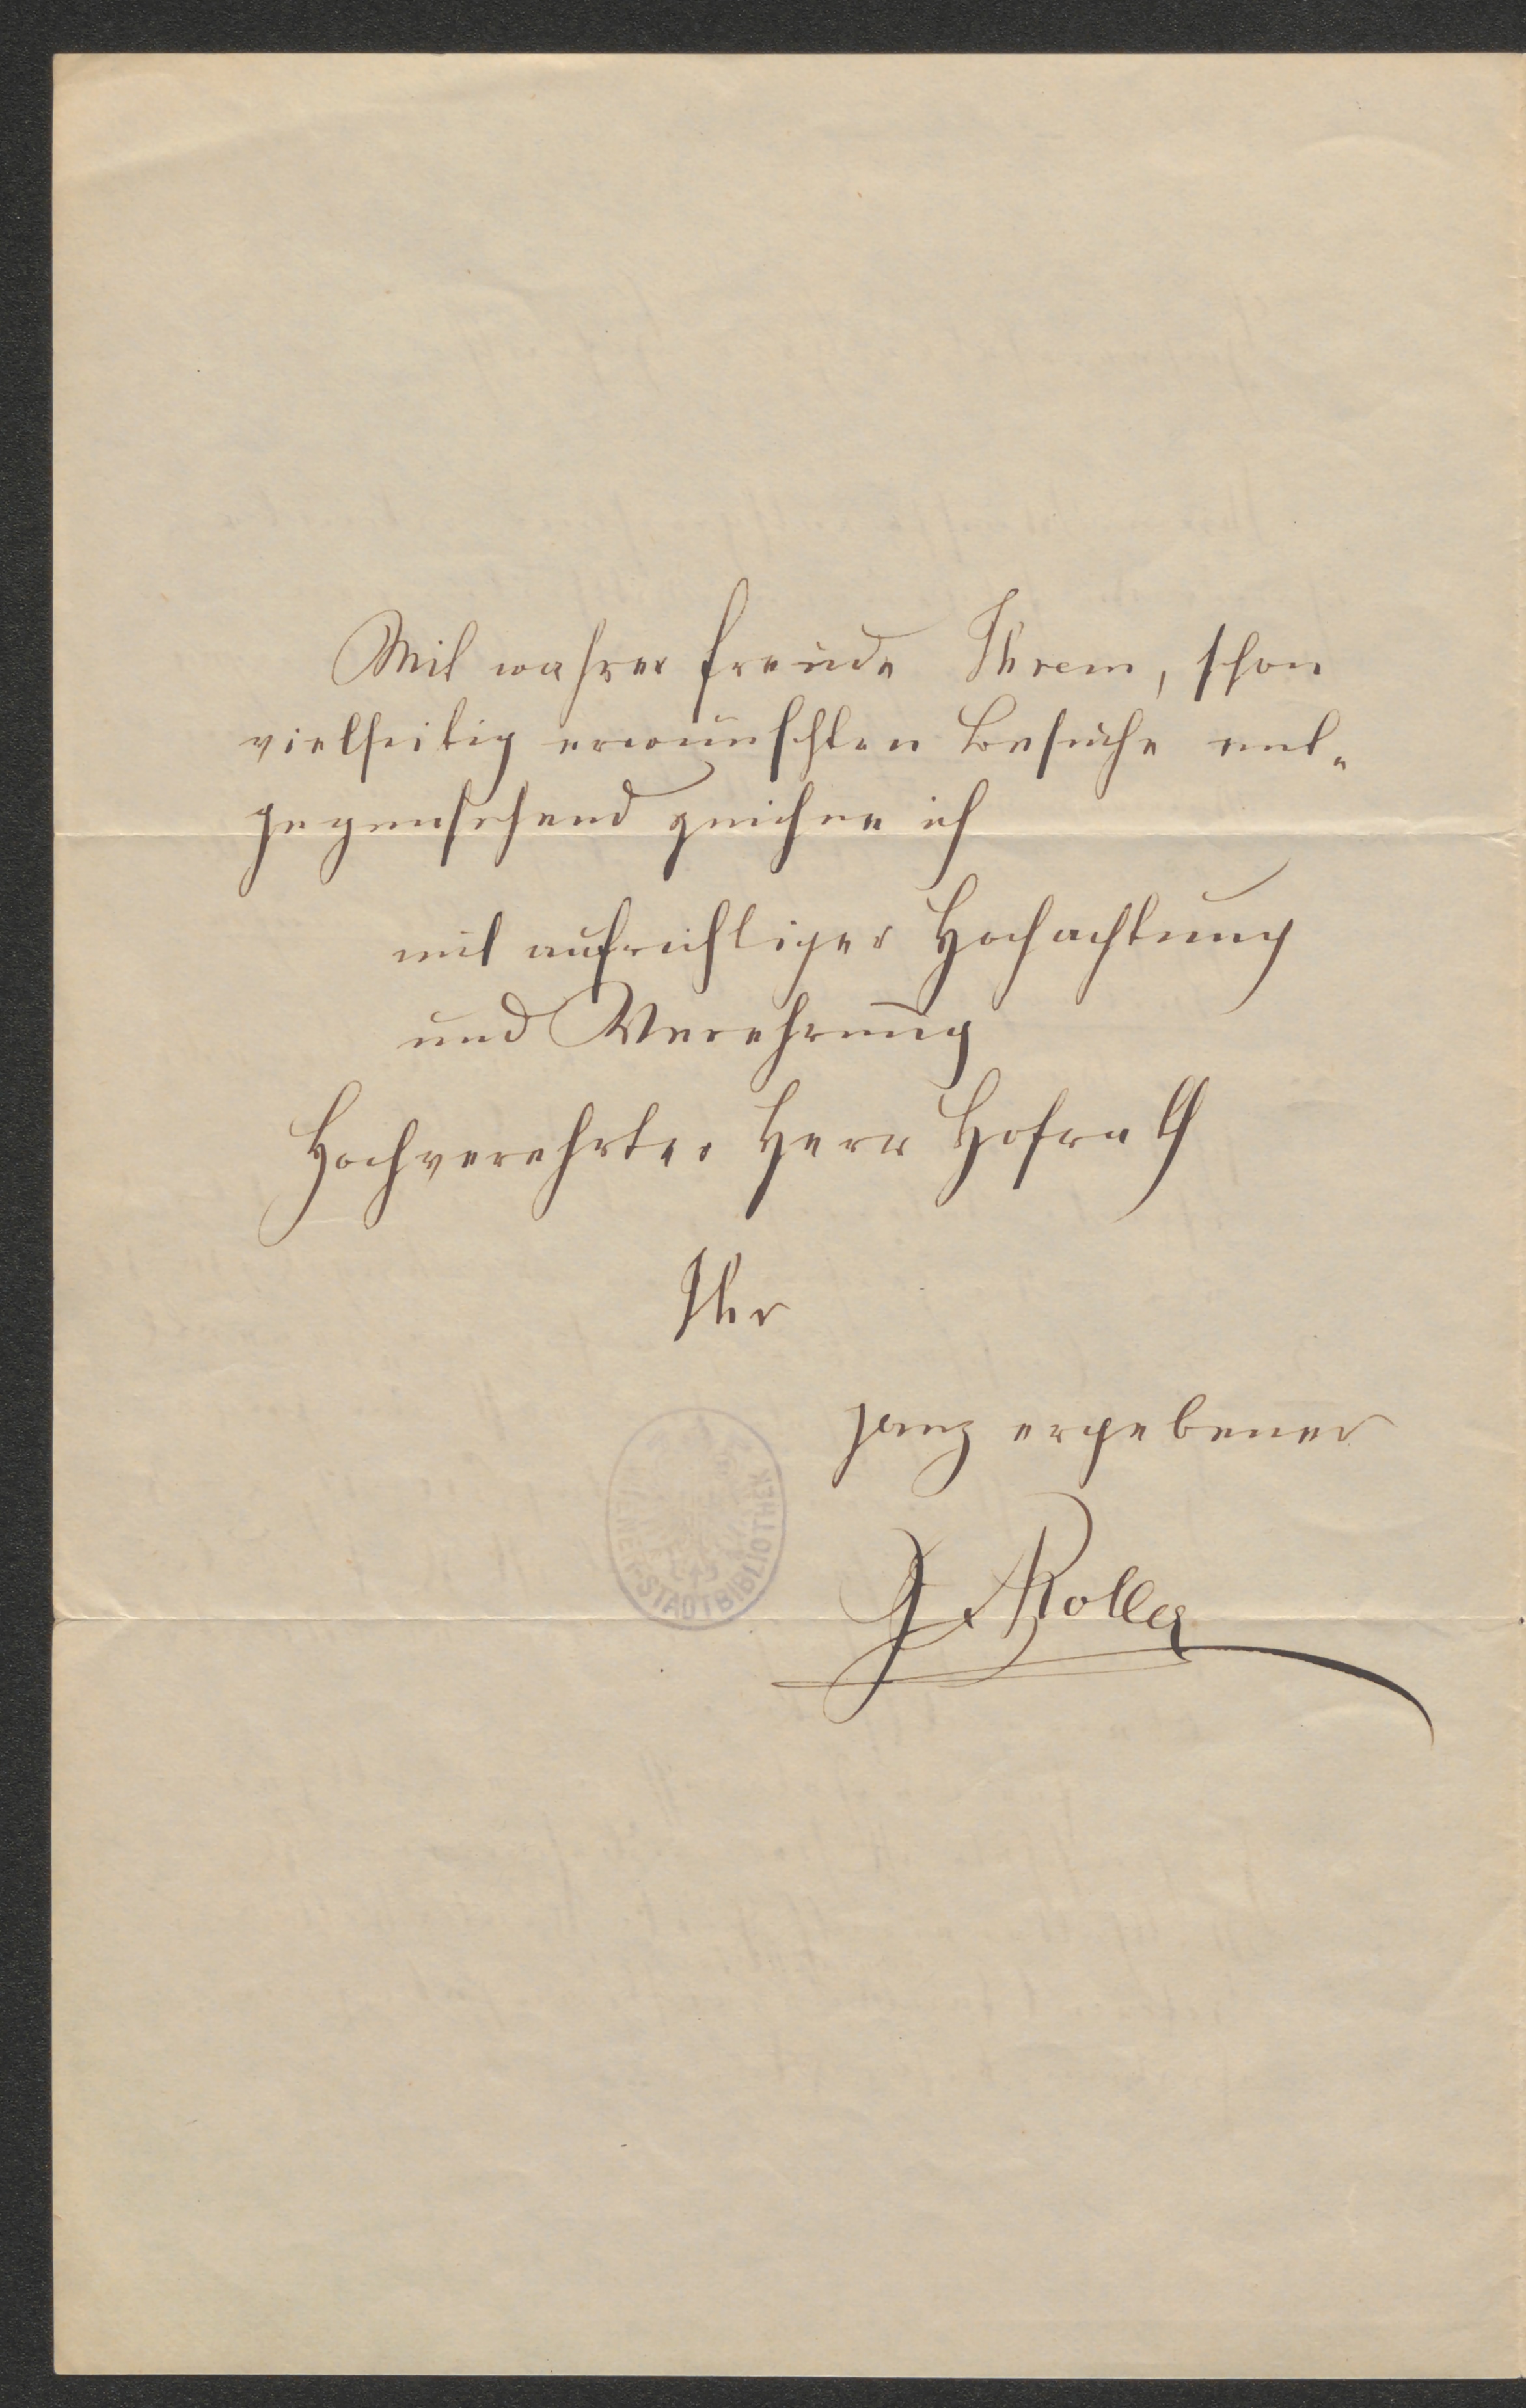 Mit wahrer Freude Ihrem, schon
vielseitig erwünschten Besuche ent-
gegensehend zeichne ich
mit aufrichtiger Hochachtung
und Verehrung
Hochverehrter Herr Hofrath
Ihr
ganz ergebener
J Roller
WIENER STADTBIBLIOTHEK